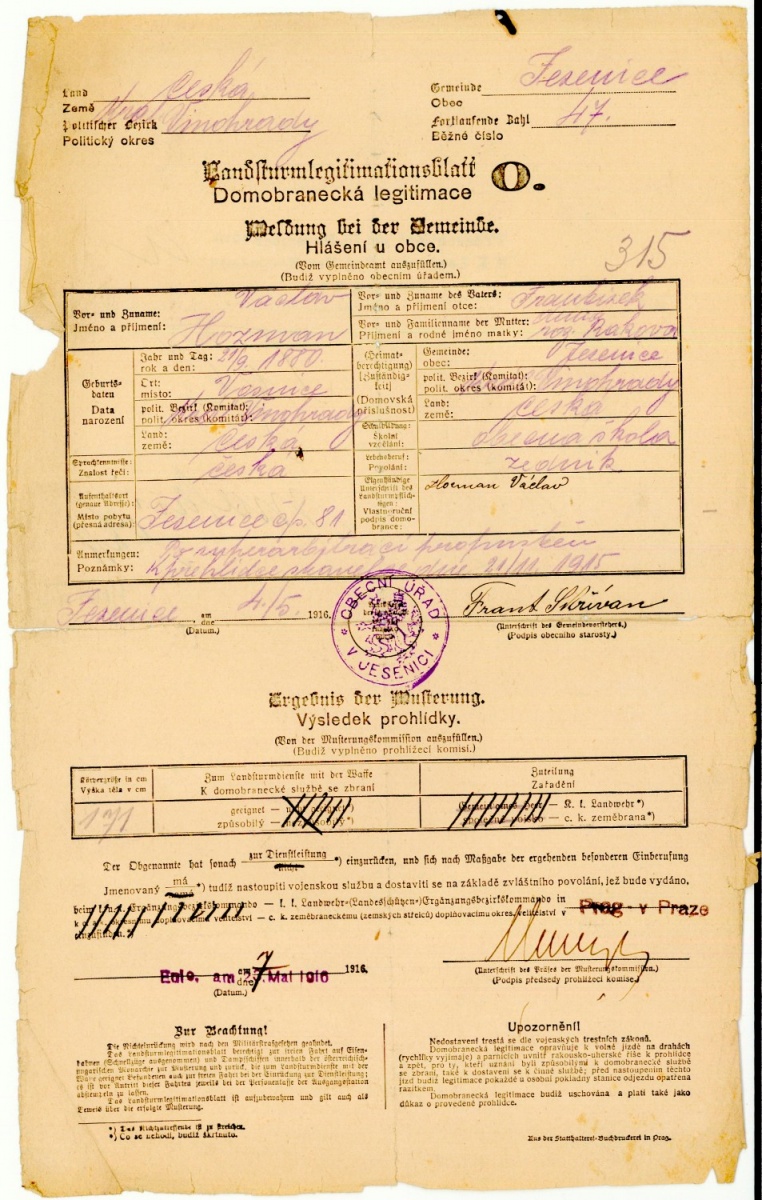 Land Česká
Země
Politischer Bezirk Král. Vinohrady
Politický okres
Gemeinde Jesenice
Obec
Fortlaufende Zahl 47.
Běžné číslo
Landsturmlegitimationsblatt
Domobranecká legitimace
O.
Meldung bei der Gemeinde.
Hlášení u obce.
(Vom Gemeindeamt auszufüllen.)
(Budiž vyplněno obecním úřadem.)
315
Vor- und Zuname: Václav
Jméno a příjmení: Hozman
Vor- und Zuname des Vaters: František
Jméno a příjmení otce:
Vor- und Familienname der Mutter:
Příjmení a rodné jméno matky: roz. Raková
Geburts-
daten
Data
narození
Jahr und Tag: 21/9 1880.
rok a den:
Ort:
místo:
polit. Bezirk (Komitat): Vinohrady
polit. okres (komitát):
Land: Česká
země:
(Heimat-
berechtigung)
(Zuständig-
keit)
(Domovská
příslušnost)
Gemeinde: Jesenice
obec:
polit. Bezirk (Komitat): Vinohrady
polit. okres (komitát):
Land: Česká
země:
Schulbildung: obecná škola
Školní
vzdělání:
Sprachkenntnisse: česká
Znalost řečí:
Lebensberuf: zedník
Povolání:
Aufenthaltsort
(genaue Adresse):
Místo pobytu
(přesná adresa): Jesenice čp. 81
Eigenhändige
Unterschrift des
Landsturmpflich-
tigen:
Vlastnoruční
podpis domo-
brance:
Hozman Václav
Anmerkungen:
Poznámky: dne 21/11 1915
Jesenice am
dne 4/5. 1916.
(Datum.)
OBECNÍ ÚŘAD
V JESENICI
Frant. Skřivan
(Unterschrift des Gemeindevorstehers.)
(Podpis obecního starosty.)
Ergebnis der Musterung.
Výsledek prohlídky.
(Von der Musterungskommission auszufüllen.)
(Budiž vyplněno prohlížecí komisí.)
Körpergröße in cm
Výška těla v cm
171
Zum Landsturmdienste mit der Waffe
K domobranecké službě se zbraní
geeignet —
způsobilý —
Zuteilung
Zařadění
K. k. Landwehr*)
c. k. zeměbrana*)
Der Obgenannte hat sonach zur Dienstleistung *) einzurücken, und sich nach Maßgabe der ergehenden besonderen Einberufung
nicht
Jmenovaný má *) tudíž nastoupiti vojenskou službu a dostaviti se na základě zvláštního povolání, jež bude vydáno,
nemá
beim k. u. k. Ergänzungsbezirkskommando — k. k. Landwehr-(Landesschützen-)Ergänzungsbezirkskommando in Prag - v Praze
— c. k. zeměbraneckému (zemských střelců) doplňovacímu okres. velitelství v
einzufinden.
Eule, am
dne 7 Mai 1916 1916.
(Datum.)
(Unterschrift des Präses der Musterungskommission.)
(Podpis předsedy prohlížecí komise.)
Zur Beachtung!
Die Nichteinrückung wird nach den Militärstrafgesetzen geahndet.
Das Landsturmlegitimationsblatt berechtigt zur freien Fahrt auf Eisen-
bahnen (Schnellzüge ausgenommen) und Dampfschiffen innerhalb der österreichisch-
ungarischen Monarchie zur Musterung und zurück, die zum Landsturmdienste mit der
Waffe geeignet Befundenen auch zur freien Fahrt bei der Einrückung zur Dienstleistung; es
ist vor Antritt dieser Fahrten jeweils bei der Personenkasse der Ausgangsstation
abstempeln zu lassen.
Das Landsturmlegitimationsblatt ist aufzubewahren und gilt auch als
Beweis über die erfolgte Musterung.
*) Das Nichtzutreffende ist zu streichen.
*) Co se nehodí, budiž škrtnuto.
Upozornění!
Nedostavení trestá se dle vojenských trestních zákonů.
Domobranecká legitimace opravňuje k volné jízdě na drahách
(rychlíky vyjímaje) a parnících uvnitř rakousko-uherské říše k prohlídce
a zpět, pro ty, kteří uznáni byli způsobilými k domobranecké službě
se zbraní, také k dostavení se k činné službě; před nastoupením těchto
jízd budiž legitimace pokaždé u osobní pokladny stanice odjezdu opatřena
razítkem.
Domobranecká legitimace budiž uschována a platí také jako
důkaz o provedené prohlídce.
Aus der Statthalterei-Buchdruckerei in Prag.